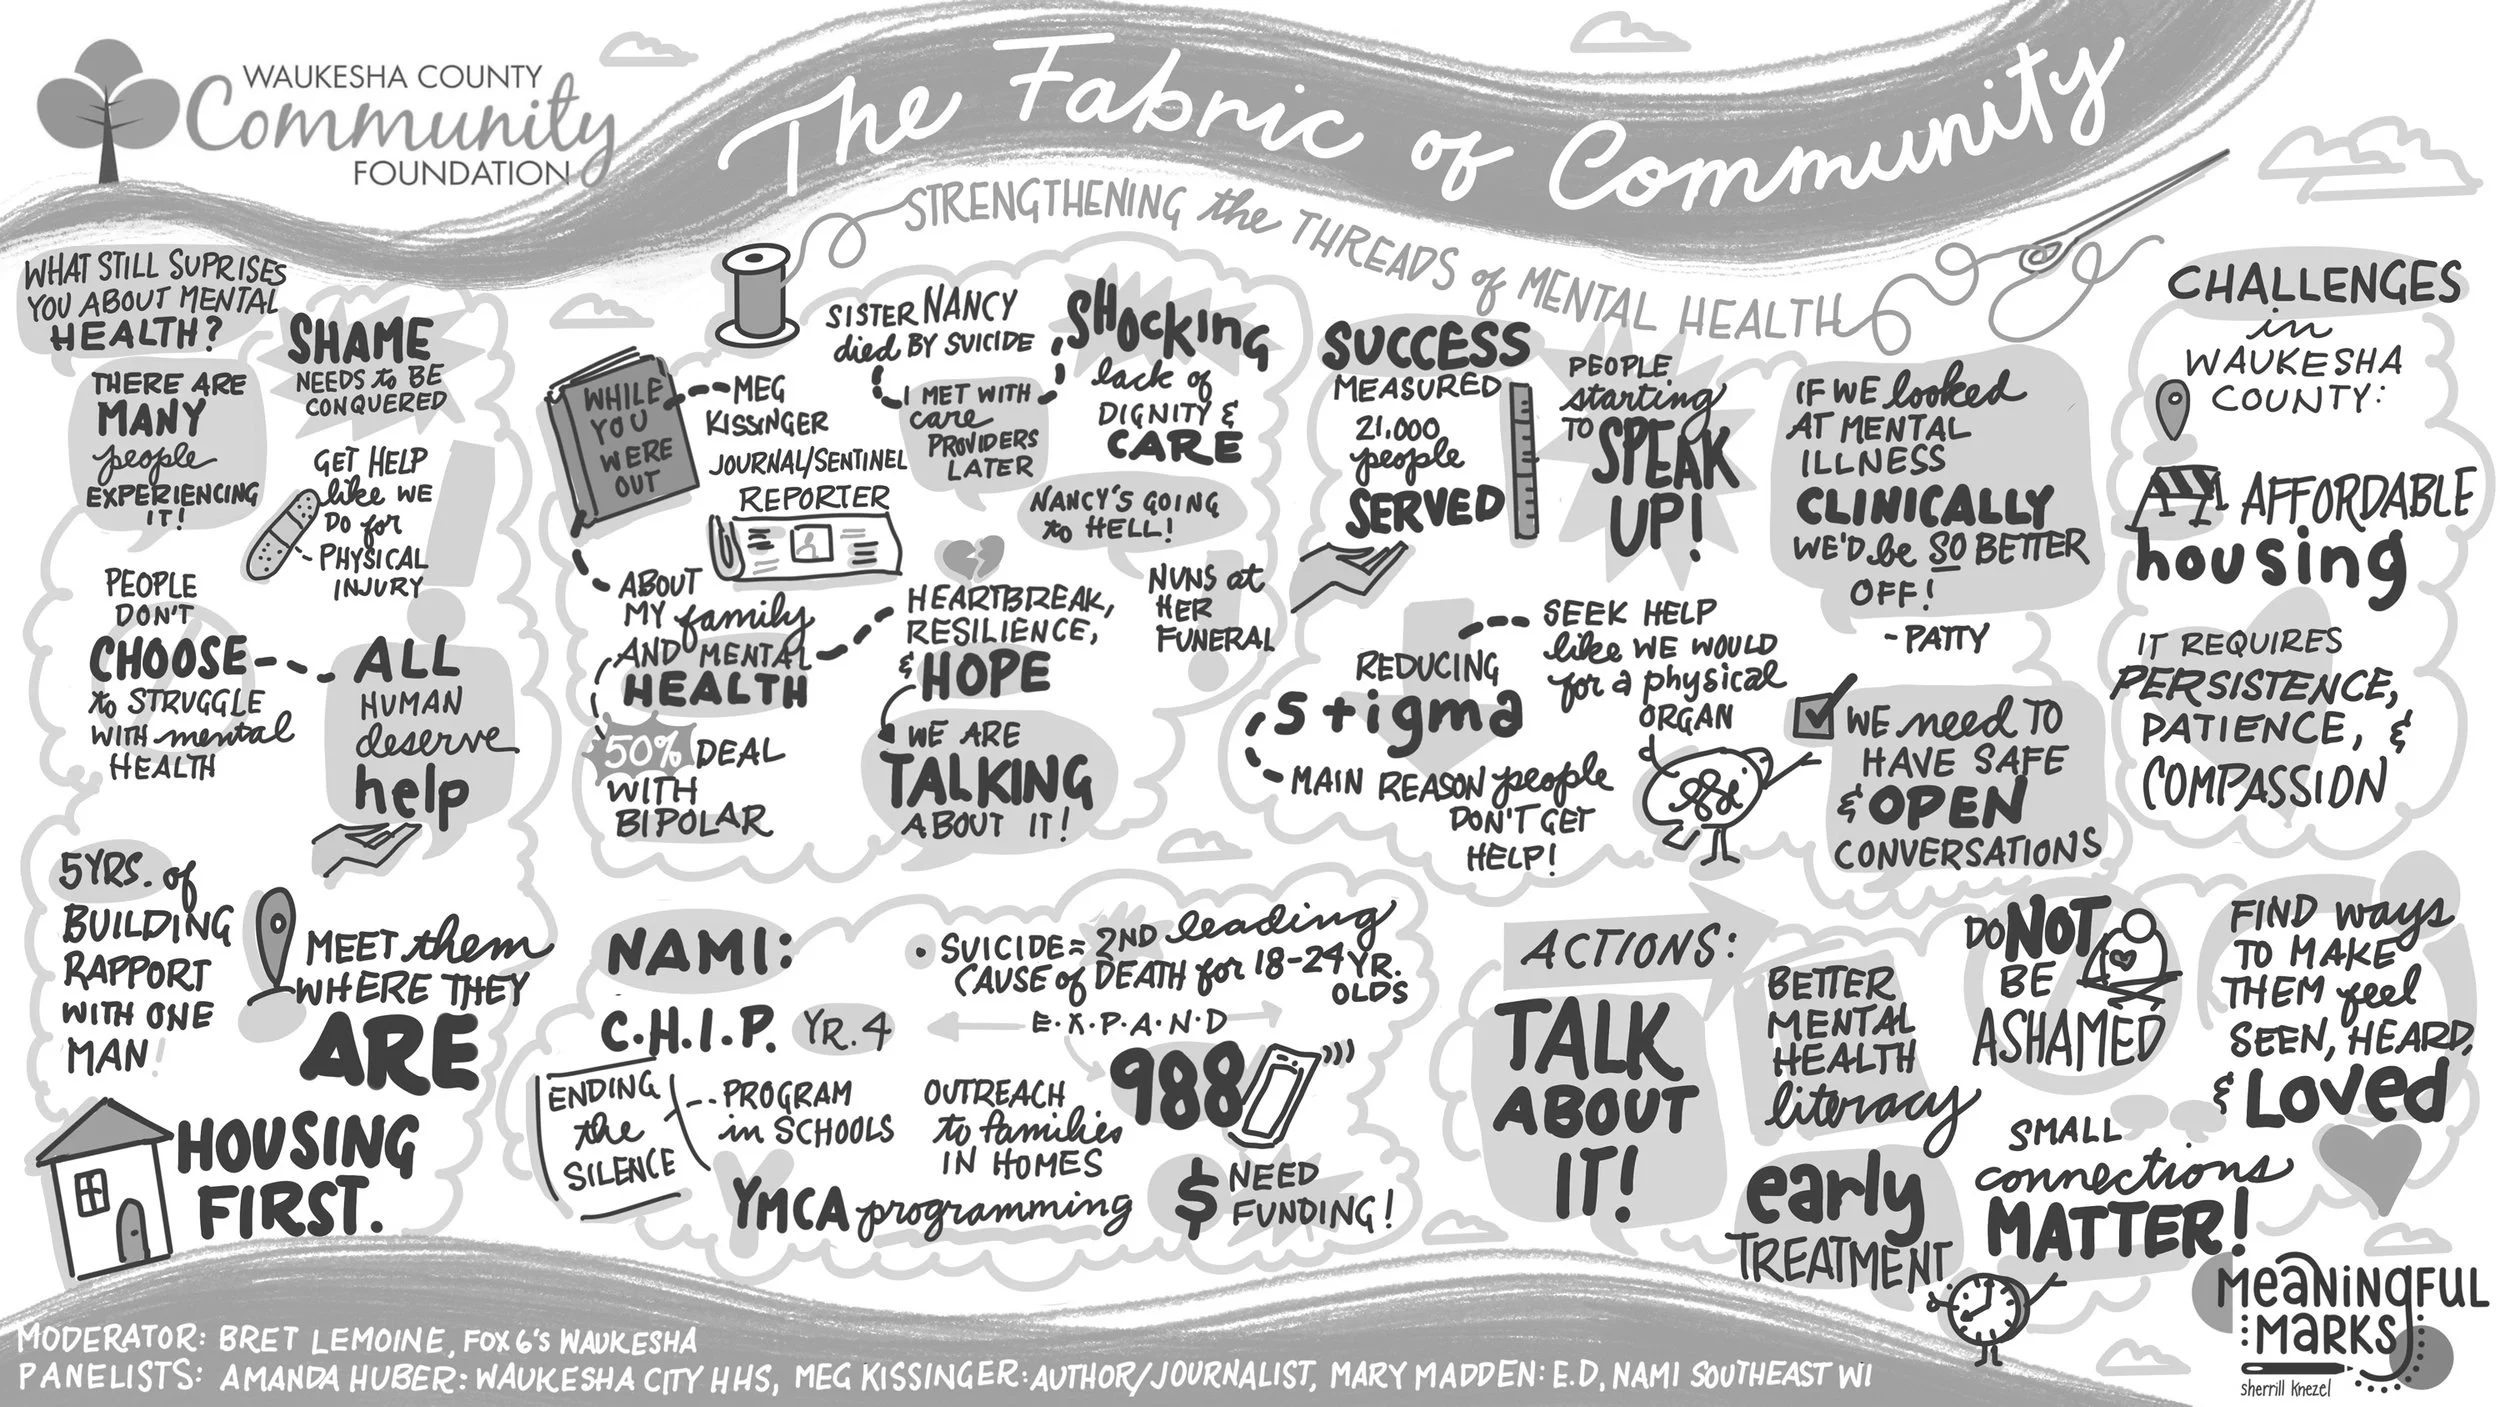 WAUKESHA COUNTY
Community
FOUNDATION
The Fabric of Community
STRENGTHENING the THREADS of MENTAL HEALTH
WHAT STILL SUPRISES
YOU ABOUT MENTAL
HEALTH?
THERE ARE
MANY
people
EXPERIENCING
IT!
SHAME
NEEDS to BE
CONQUERED
GET HELP
like WE
DO for
PHYSICAL
INJURY
PEOPLE
DON'T
CHOOSE
to STRUGGLE
WITH mental
HEALTH
ALL
HUMAN
deserve
help
5YRS. of
BUILDING
RAPPORT
WITH ONE
MAN!
MEET them
WHERE THEY
ARE
HOUSING
FIRST.
WHILE
YOU
WERE
OUT
MEG
KISSINGER
JOURNAL/SENTINEL
REPORTER
ABOUT
MY family
AND MENTAL
HEALTH
50% DEAL
WITH
BIPOLAR
SISTER NANCY
died BY SUICIDE
I MET WITH
care
PROVIDERS
LATER
SHOCKING
lack of
DIGNITY &
CARE
NANCY'S GOING
to HELL!
NUNS at
HER
FUNERAL
HEARTBREAK,
RESILIENCE,
& HOPE
WE ARE
TALKING
ABOUT IT!
SUCCESS
MEASURED
21,000
people
SERVED
PEOPLE
starting
TO SPEAK
UP!
IF WE looked
AT MENTAL
ILLNESS
CLINICALLY
WE'D be SO BETTER
OFF!
- PATTY
REDUCING
stigma
SEEK HELP
like WE WOULD
for a physical
ORGAN
MAIN REASON people
DON'T GET
HELP!
WE need TO
HAVE SAFE
& OPEN
CONVERSATIONS
CHALLENGES
in
WAUKESHA
COUNTY:
AFFORDABLE
housing
IT REQUIRES
PERSISTENCE,
PATIENCE, &
COMPASSION
NAMI:
• SUICIDE = 2ND leading
CAUSE of DEATH for 18-24 YR.
OLDS
C.H.I.P. YR. 4
E·X·P·A·N·D
ENDING
the
SILENCE
PROGRAM
in SCHOOLS
OUTREACH
to families
IN HOMES
988
YMCA programming
$ NEED
FUNDING!
ACTIONS:
TALK
ABOUT
IT!
BETTER
MENTAL
HEALTH
literacy
DO NOT
BE
ASHAMED
FIND ways
TO MAKE
THEM feel
SEEN, HEARD,
& Loved
early
TREATMENT
SMALL
connections
MATTER!
MODERATOR: BRET LEMOINE, FOX 6'S WAUKESHA
PANELISTS: AMANDA HUBER: WAUKESHA CITY HHS, MEG KISSINGER: AUTHOR/JOURNALIST, MARY MADDEN: E.D, NAMI SOUTHEAST WI
MeaNiNgFUL
MaRKS
sherrill knezel